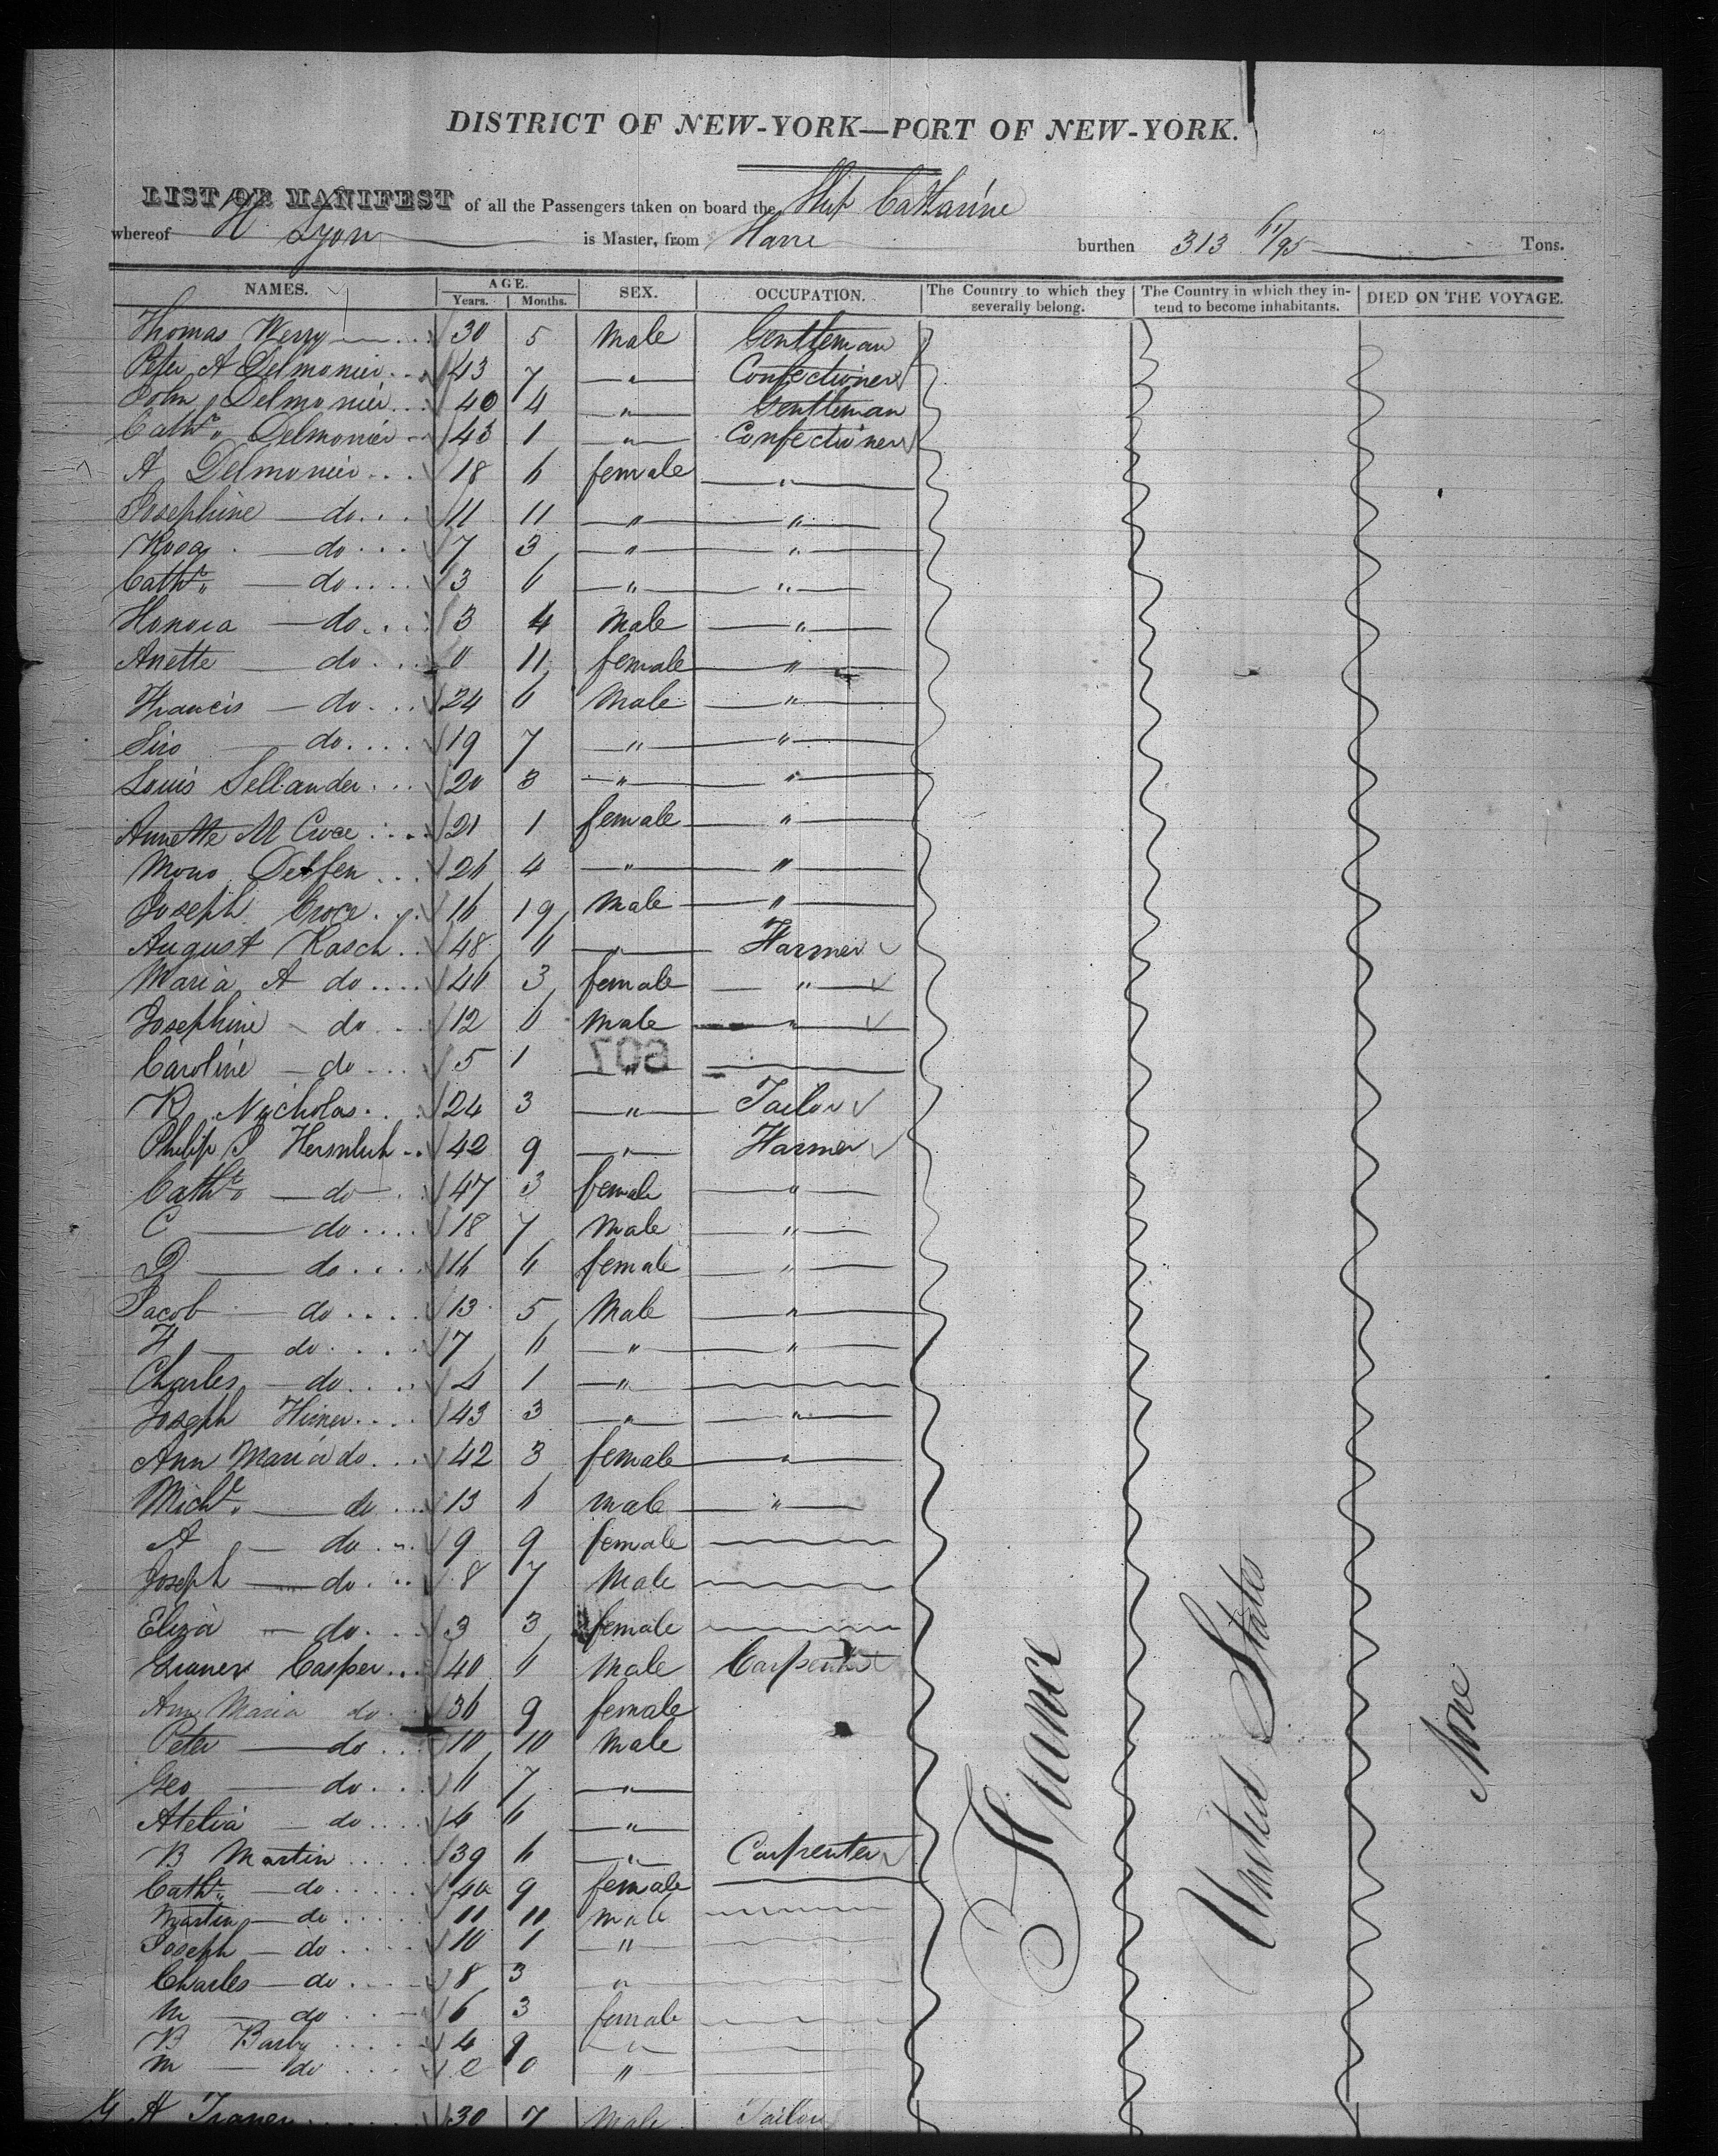 DISTRICT OF NEW-YORK—PORT OF NEW-YORK.
LIST OR MANIFEST of all the Passengers taken on board the Ship Catharine
whereof H Lyon is Master, from Havre burthen 313 /95 Tons.
NAMES. AGE. SEX. OCCUPATION. The Country to which they severally belong. The Country in which they intend to become inhabitants. DIED ON THE VOYAGE.
Years. Months.
Thomas Werry 30 5 Male Gentleman
Peter A Delmonier 43 7 " Confectioner
John Delmonier 40 4 " Gentleman
Cathe Delmonier 43 1 " Confectioner
A Delmonier 18 6 female "
Josephine do 11 11 " "
Rosa do 7 3 " "
Cathe do 3 6 " "
Honora do 3 4 Male "
Anette do 0 11 female "
Francis do 24 6 Male "
Siro do 19 7 " "
Louis Sellander 20 3 " "
Annette M Croce 21 1 female "
Mono Delfen 26 4 " "
Joseph Croce 16 19 Male "
August Rasch 48 6 " Farmer
Maria A do 40 3 female "
Josephine do 12 6 Male "
Caroline do 5 1 "
607
R Nicholas 24 3 " Tailor
Philip S 42 9 " Farmer
Cathe do 47 3 female "
C do 18 7 Male "
do 16 6 female "
Jacob do 13 5 Male "
F do 7 6 " "
Charles do 4 1 "
Joseph Himer 43 3 " "
Ann Maria do 42 3 female "
Michl do 13 6 male "
A do 9 9 female
Joseph do 8 7 Male
Eliza do 3 3 female
Casper 40 6 Male Carpenter
Ann Maria do 36 9 female
Peter do 10 10 Male
Geo do 6 7 "
do 4 6 "
B Martin 39 6 " Carpenter
Cathe do 40 9 female
Martin do 11 11 male
Joseph do 10 1 "
Charles do 8 3 "
M do 6 3 female
B Barby 4 9 "
M do 0 "
A Traner 30 7 Male Tailor
France
United States
None